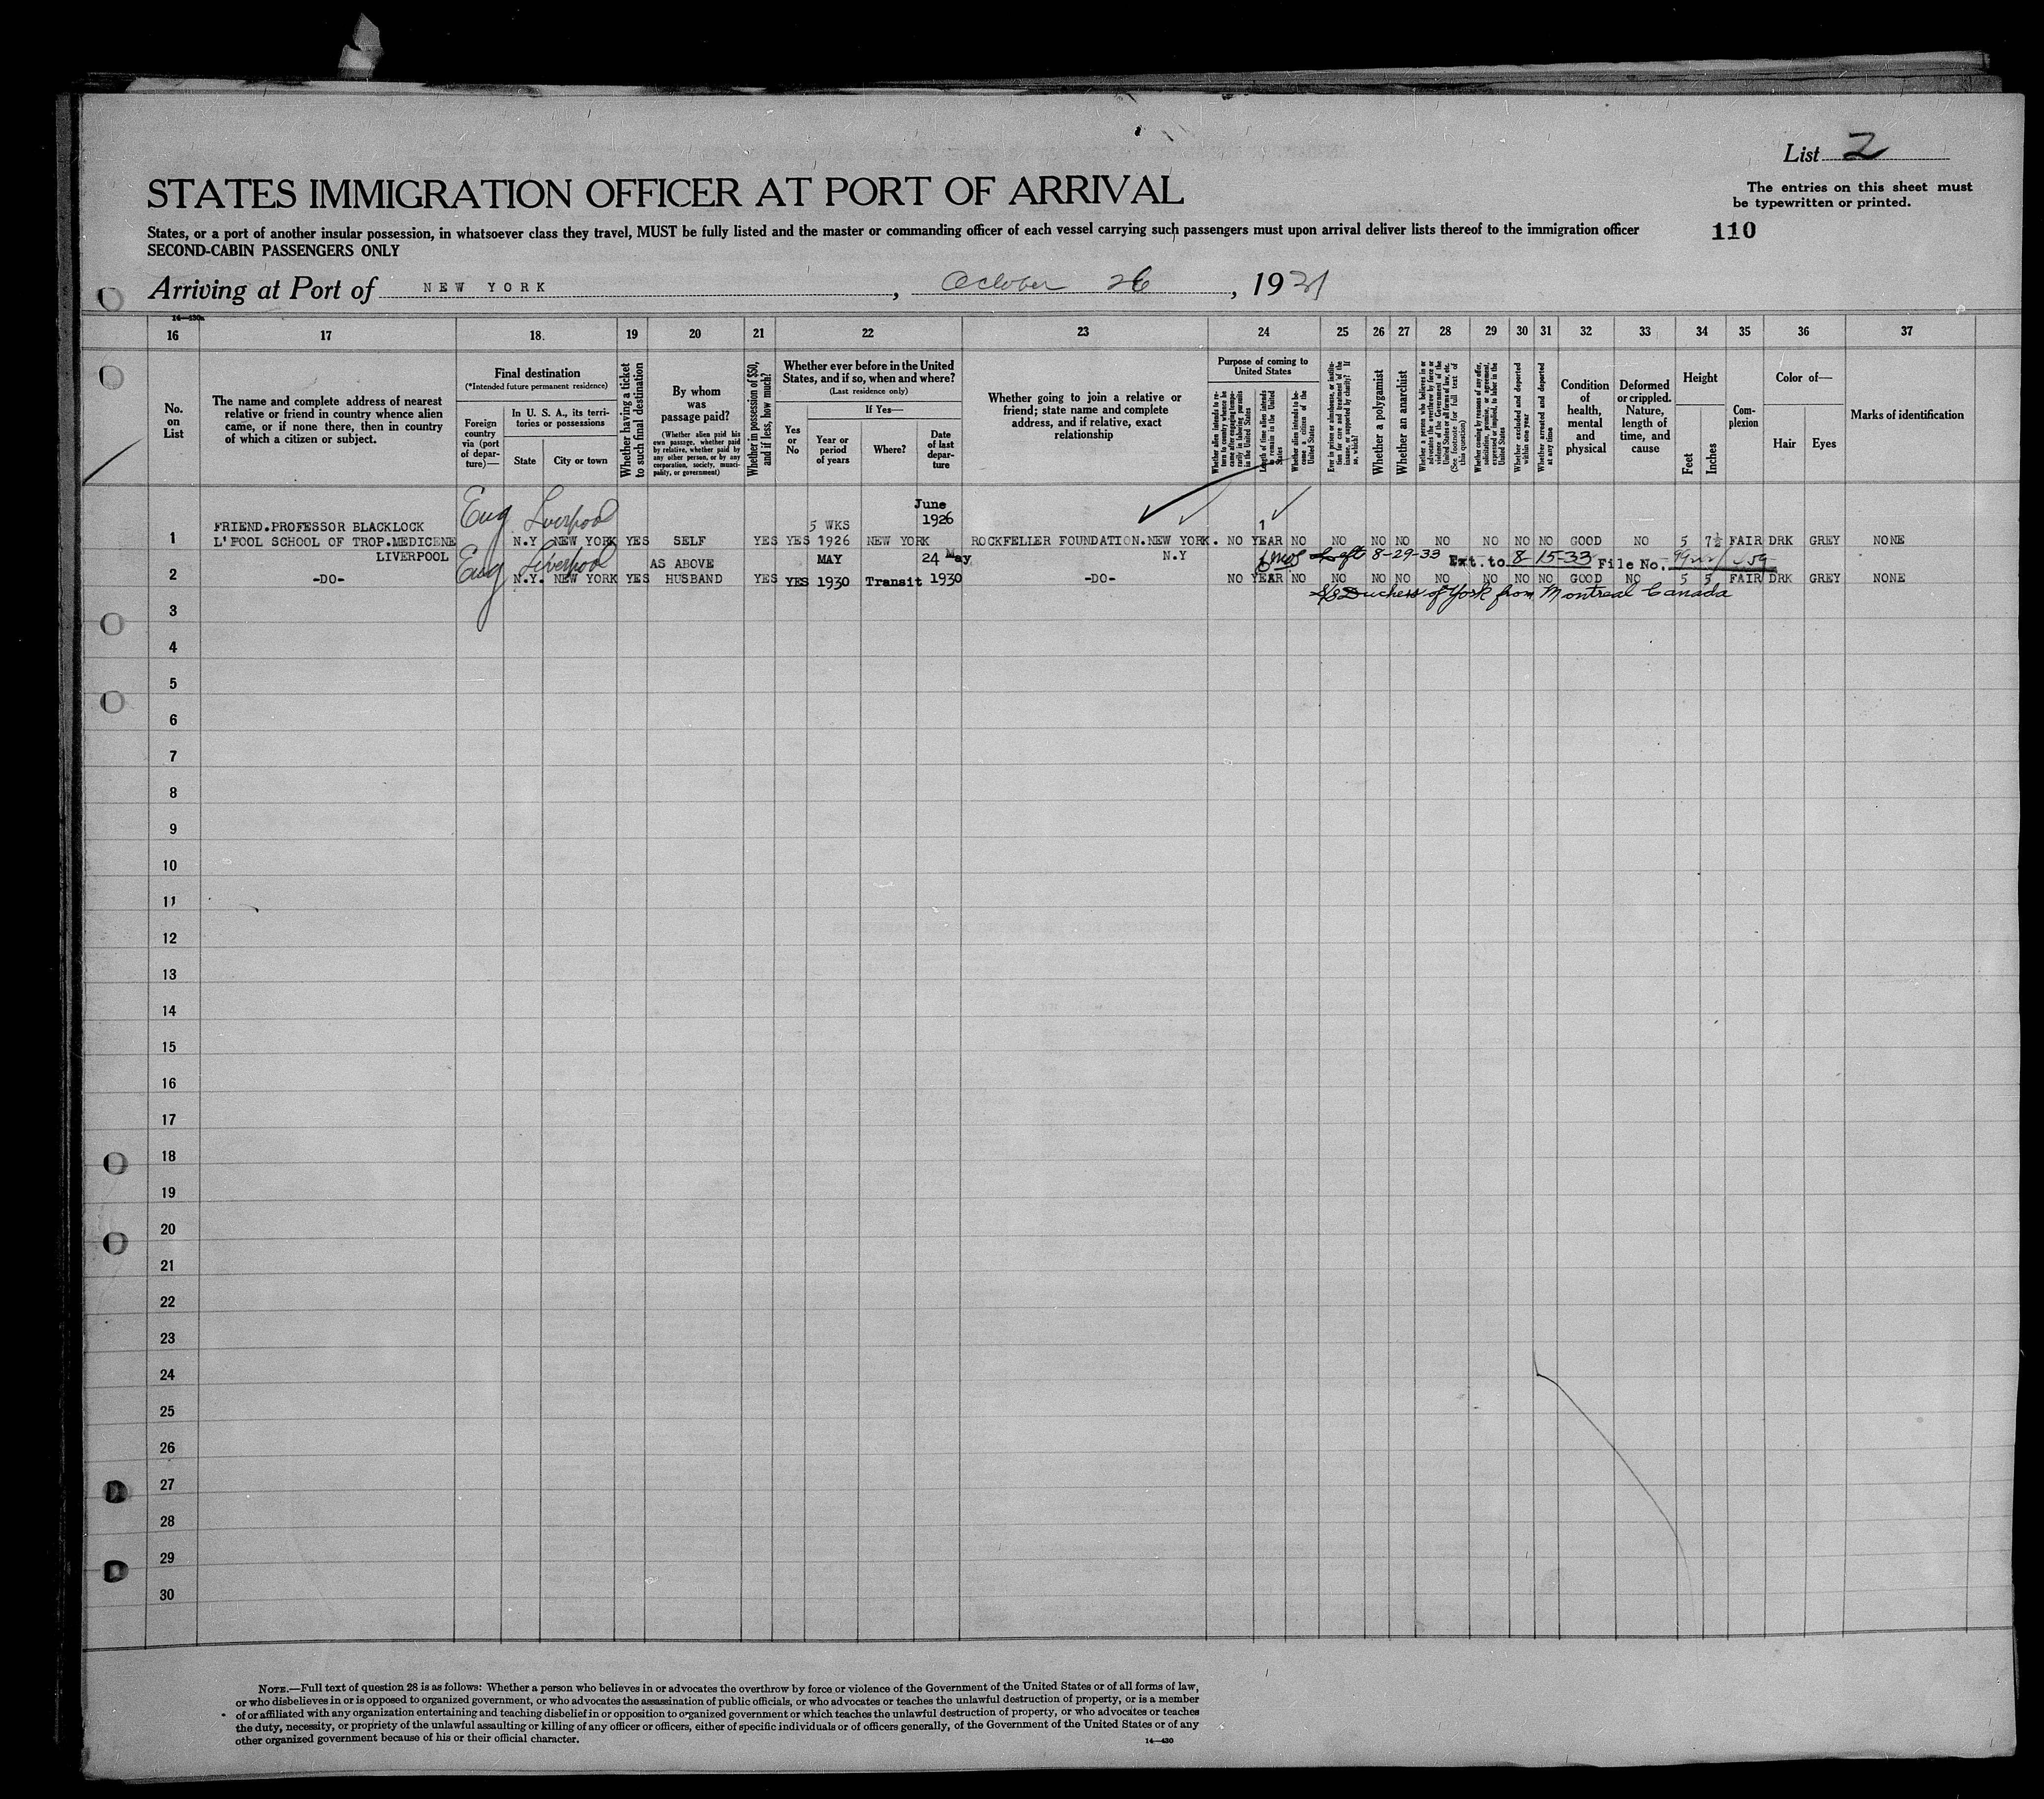 List 2
STATES IMMIGRATION OFFICER AT PORT OF ARRIVAL
The entries on this sheet must
be typewritten or printed.
States, or a port of another insular possession, in whatsoever class they travel, MUST be fully listed and the master or commanding officer of each vessel carrying such passengers must upon arrival deliver lists thereof to the immigration officer
110
SECOND-CABIN PASSENGERS ONLY
Arriving at Port of NEW YORK, October 26, 1931
14—430a
16 17 18. 19 20 21 22 23 24 25 26 27 28 29 30 31 32 33 34 35 36 37
No. on List
The name and complete address of nearest relative or friend in country whence alien came, or if none there, then in country of which a citizen or subject.
Final destination
(*Intended future permanent residence)
Foreign country via (port of departure)—
In U. S. A., its territories or possessions
State
City or town
Whether having a ticket to such final destination
By whom was passage paid?
(Whether alien paid his own passage, whether paid by relative, whether paid by any other person, or by any corporation, society, municipality, or government)
Whether in possession of $50, and if less, how much?
Whether ever before in the United States, and if so, when and where?
(Last residence only)
Yes or No
If Yes—
Year or period of years
Where?
Date of last departure
Whether going to join a relative or friend; state name and complete address, and if relative, exact relationship
Purpose of coming to United States
Whether alien intends to return to country whence he came after engaging temporarily in laboring pursuits in the United States
Length of time alien intends to remain in the United States
Whether alien intends to become a citizen of the United States
Ever in prison or almshouse, or institution for care and treatment of the insane, or supported by charity? If so, which?
Whether a polygamist
Whether an anarchist
Whether a person who believes in or advocates the overthrow by force or violence of the Government of the United States or all forms of law, etc. (See footnote for full text of this question)
Whether coming by reason of any offer, solicitation, promise, or agreement, expressed or implied, to labor in the United States
Whether excluded and deported within one year
Whether arrested and deported at any time
Condition of health, mental and physical
Deformed or crippled. Nature, length of time, and cause
Height
Feet
Inches
Complexion
Color of—
Hair
Eyes
Marks of identification
Eng Liverpool June
FRIEND.PROFESSOR BLACKLOCK 5 WKS 1926 1
1 L'POOL SCHOOL OF TROP.MEDICENE N.Y NEW YORK YES SELF YES YES 1926 NEW YORK ROCKFELLER FOUNDATION.NEW YORK. NO YEAR NO NO NO NO NO NO NO NO GOOD NO 5 7½ FAIR DRK GREY NONE
LIVERPOOL Eng Liverpool AS ABOVE MAY 24 May N.Y Left 8-29-33 Ext. to 8-15-33 File No.
2 -DO- N.Y. NEW YORK YES HUSBAND YES YES 1930 Transit 1930 -DO- NO YEAR NO NO NO NO NO NO NO NO GOOD NO 5 5 FAIR DRK GREY NONE
S/S Duchess of York from Montreal Canada
3
4
5
6
7
8
9
10
11
12
13
14
15
16
17
18
19
20
21
22
23
24
25
26
27
28
29
30
NOTE.—Full text of question 28 is as follows: Whether a person who believes in or advocates the overthrow by force or violence of the Government of the United States or of all forms of law,
or who disbelieves in or is opposed to organized government, or who advocates the assassination of public officials, or who advocates or teaches the unlawful destruction of property, or is a member
of or affiliated with any organization entertaining and teaching disbelief in or opposition to organized government or which teaches the unlawful destruction of property, or who advocates or teaches
the duty, necessity, or propriety of the unlawful assaulting or killing of any officer or officers, either of specific individuals or of officers generally, of the Government of the United States or of any
other organized government because of his or their official character.
14—430